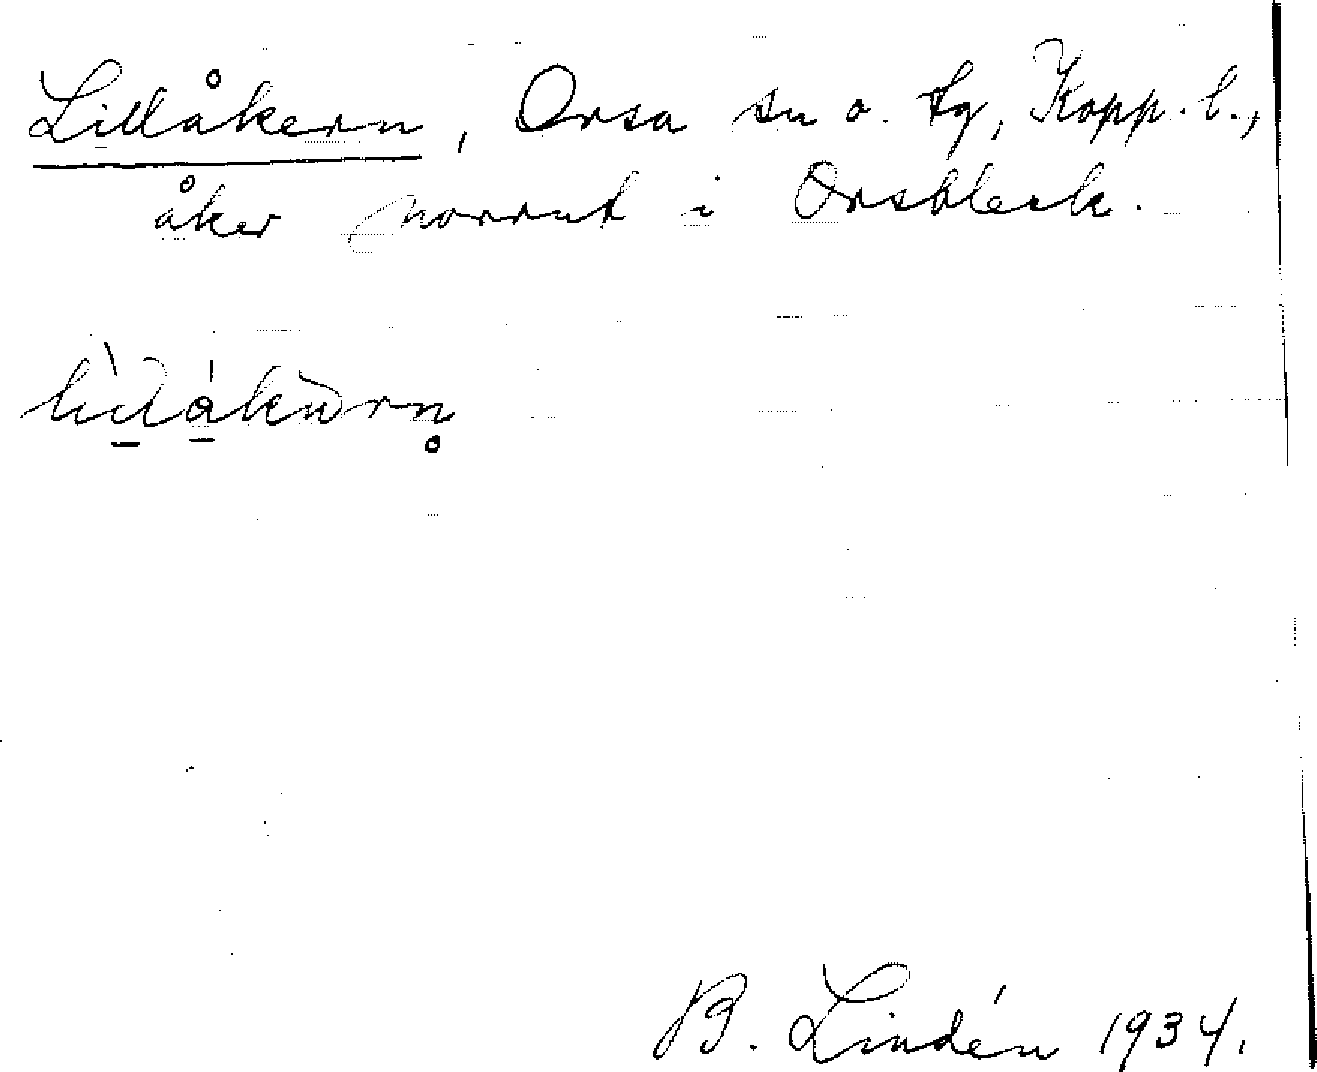 Lillåkern, Orsa sn o. tg, Kopp. l.,
åker norrut i Orsbleck.
B. Lindén 1934.